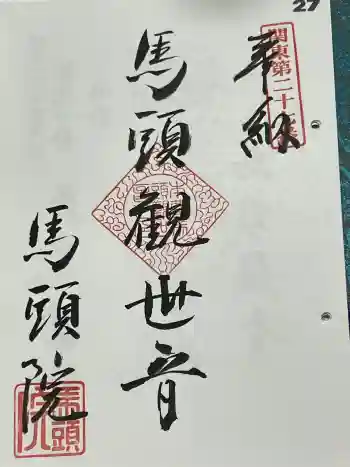 27
奉納
関東第二十七番
馬頭観世音
馬頭院
馬頭院